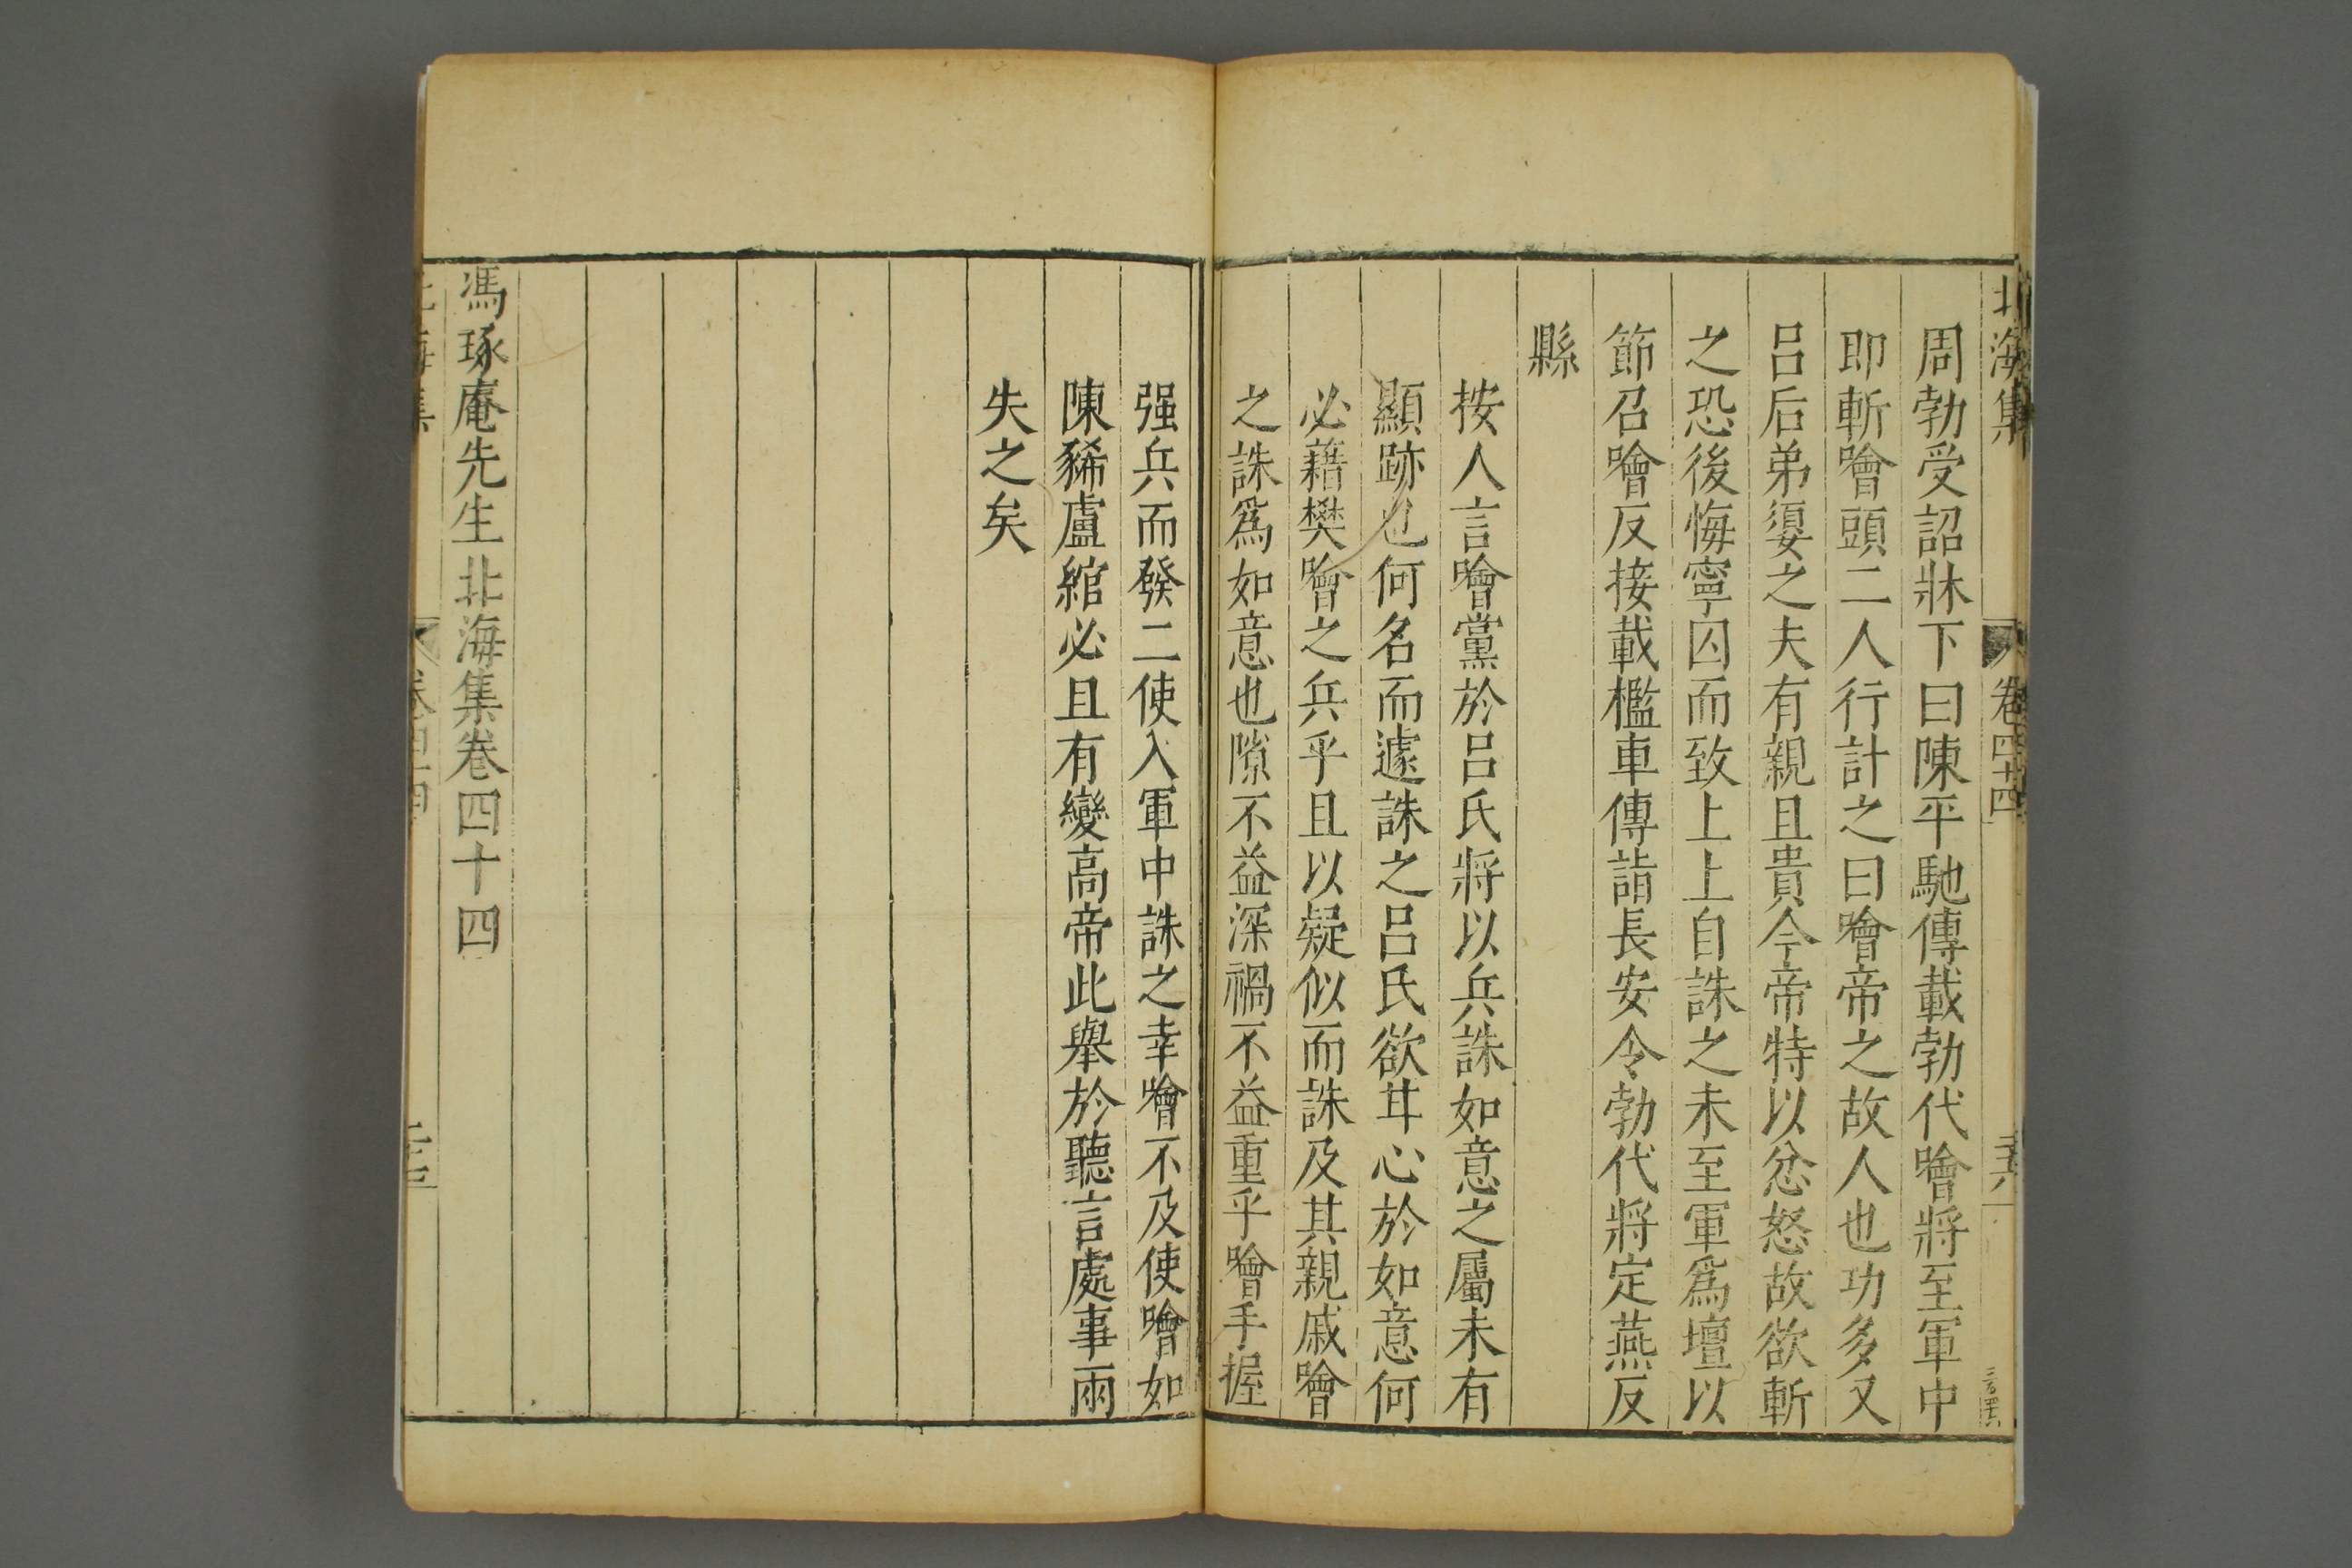 北海集
卷四十四
周勃受詔牀下曰陳平馳傳載勃代噲將至軍中
即斬噲頭二人行計之曰噲帝之故人也功多又
呂后弟嬃之夫有親且貴今帝特以忿怒故欲斬
之恐後悔寧囚而致上上自誅之未至軍爲壇以
節召噲反接載檻車傳詣長安令勃代將定燕反
縣
按人言噲黨於呂氏將以兵誅如意之屬未有
顯跡也何名而遽誅之呂氏欲甘心於如意何
必藉樊噲之兵乎且以疑似而誅及其親戚噲
之誅爲如意也隙不益深禍不益重乎噲手握
强兵而發二使入軍中誅之幸噲不及使噲如
陳豨盧綰必且有變高帝此舉於聽言處事兩
失之矣
馮琢庵先生北海集卷四十四
北海集